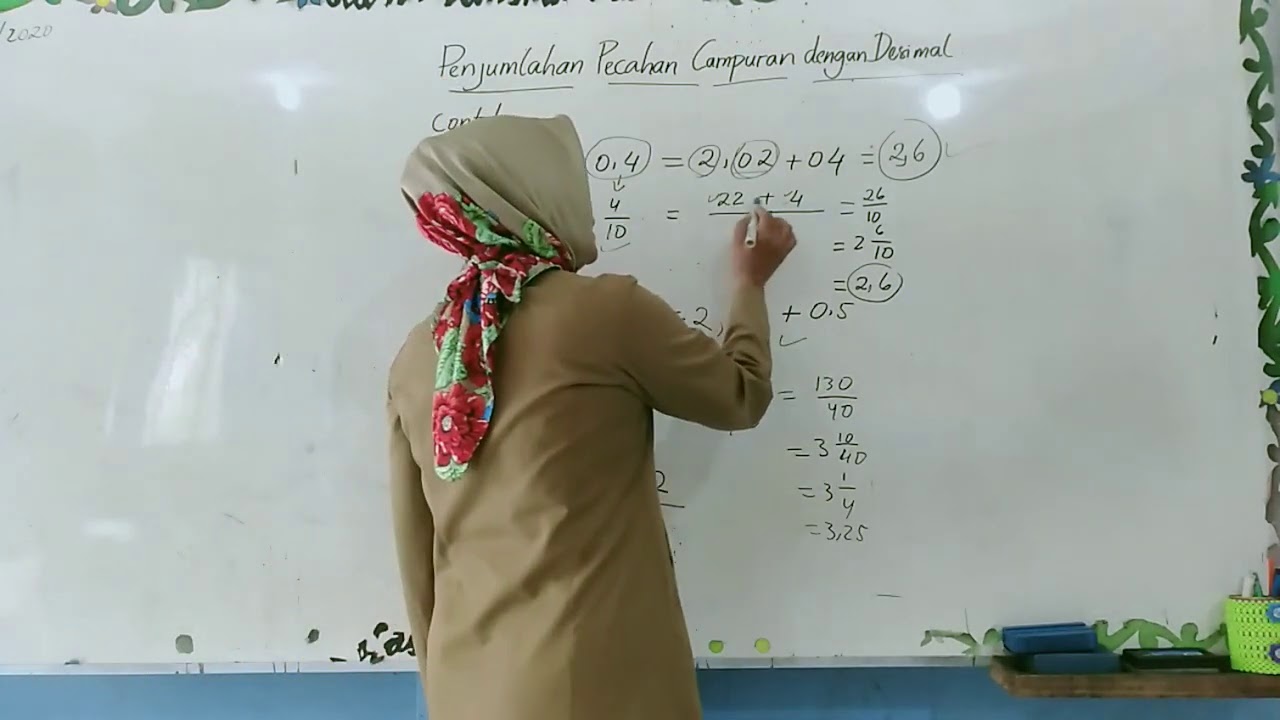 /2020
Penjumlahan Pecahan Campuran dengan Desimal
0,4 = 2,02 + 04 = 2,6
4/10 = 22 + 4 = 26/10
= 2 6/10
= 2,6
= 2, + 0.5
= 130/40
= 3 10/40
= 3 1/4
= 3,25
2